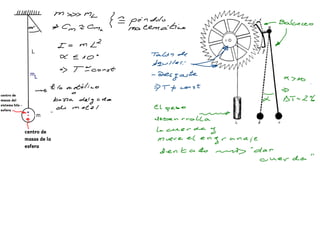 m >> mL
≠ Cm ≈ Cm
≅ péndulo
matemático
L
I = m L²
α ≤ 10°
⇒ T ≈ const
mL
hilo metálico
barra delgada
de metal
centro de
masas del
sistema hilo -
esfera
m
centro de
masas de la
esfera
Balancín
Talón de
Aquiles:
- Desgaste
⇒ T ≠ const
α > 10
⇒
ΔT = 2%
α
El peso
desenrolla
la cuerda y
mueve el engranaje
dentado
"dar
cuerda"